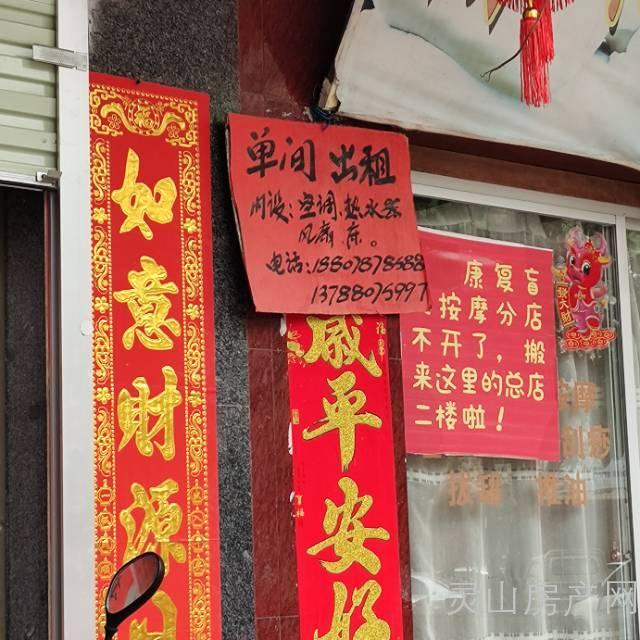 单间 出租
内设:空调.热水器
风扇 床。
电话:18807878688
13788075997
康复盲
按摩分店
不开了,搬
来这里的总店
二楼啦!
如意财源
岁平安好
大财
按摩
推油
灵山房产网